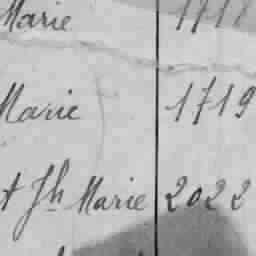 Marie 1717
Marie 1719
t Jh Marie 2022